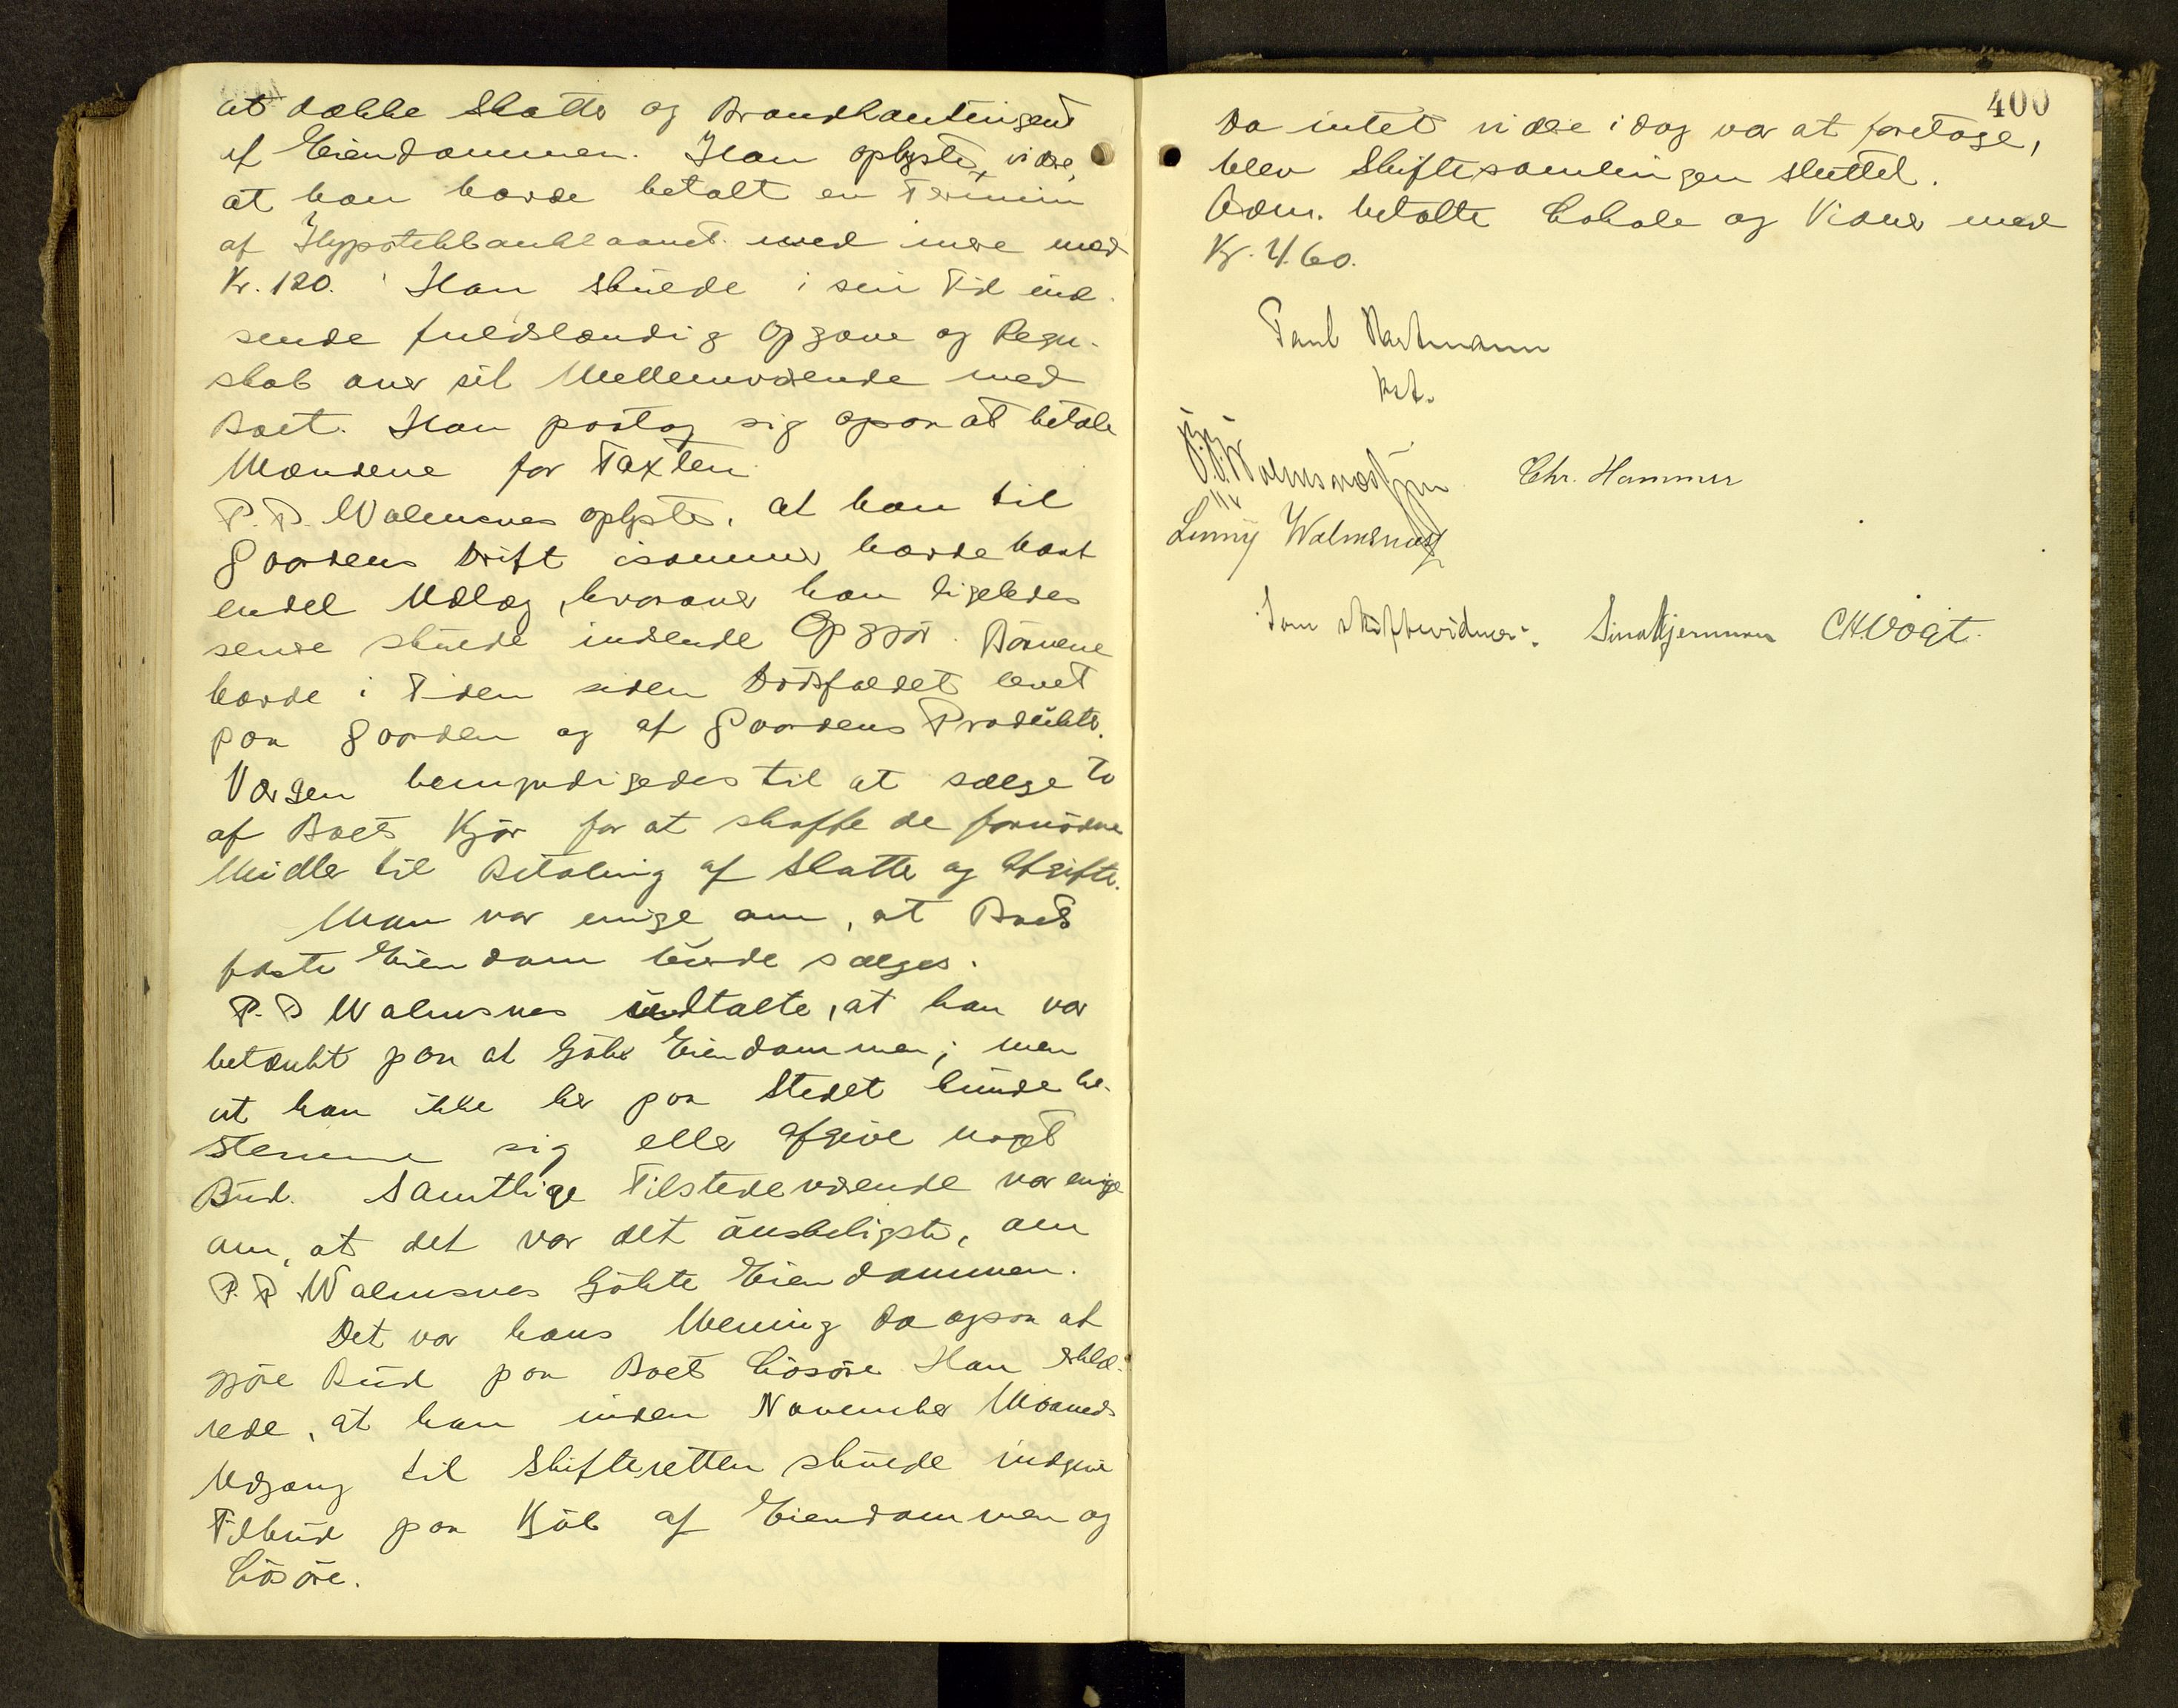 at dække Skatter og Brandkontingent
af Eiendommen. Han oplyste videre,
at han havde betalt en Termin
af Hypothekbanklaanet med mere med
Kr. 120. Han skulde i sin Tid ind-
sende fuldstændig Opgave og Regn-
skab over sit Mellemværende med
Boet. Han paatog sig ogsaa at betale
Mændene for Taxten.
P. P. Walmsnes oplyste, at han til
Gaardens Drift isommer havde havt
endel Udlæg, hvorover han ligeledes
senere skulde indsende Opgjør. Børnene
havde i Tiden siden Dødsfaldet levet
paa Gaarden og af Gaardens Produkter.
Værgen bemyndigedes til at sælge to
af Boets Kjør for at skaffe de fornødne
Midler til Betaling af Skatter og Afgifter.
Man var enige om, at Boets
faste Eiendom burde sælges.
P. P. Walmsnes udtalte, at han var
betænkt paa at kjøbe Eiendommen; men
at han ikke her paa Stedet kunde be-
stemme sig eller afgive noget
Bud. Samtlige Tilstedeværende var enige
om, at det var det ønskeligste, om
P. P. Walmsnes kjøbte Eiendommen.
Det var hans Mening da ogsaa at
gjøre Bud paa Boets Løsøre. Han erklæ-
rede, at han inden November Maaneds
Udgang til Skifteretten skulde indgive
Tilbud paa Kjøb af Eiendommen og
Løsøre.
400
Da intet videre idag var at foretage,
blev Skiftesamlingen sluttet.
Adm. betalte Lokale og Vidner med
Kr. 4.60.
Paul Hartmann
kst.
Walmsnæs Chr. Hammer
Walmsnæs
Som skiftevidner: CH. Vogt.